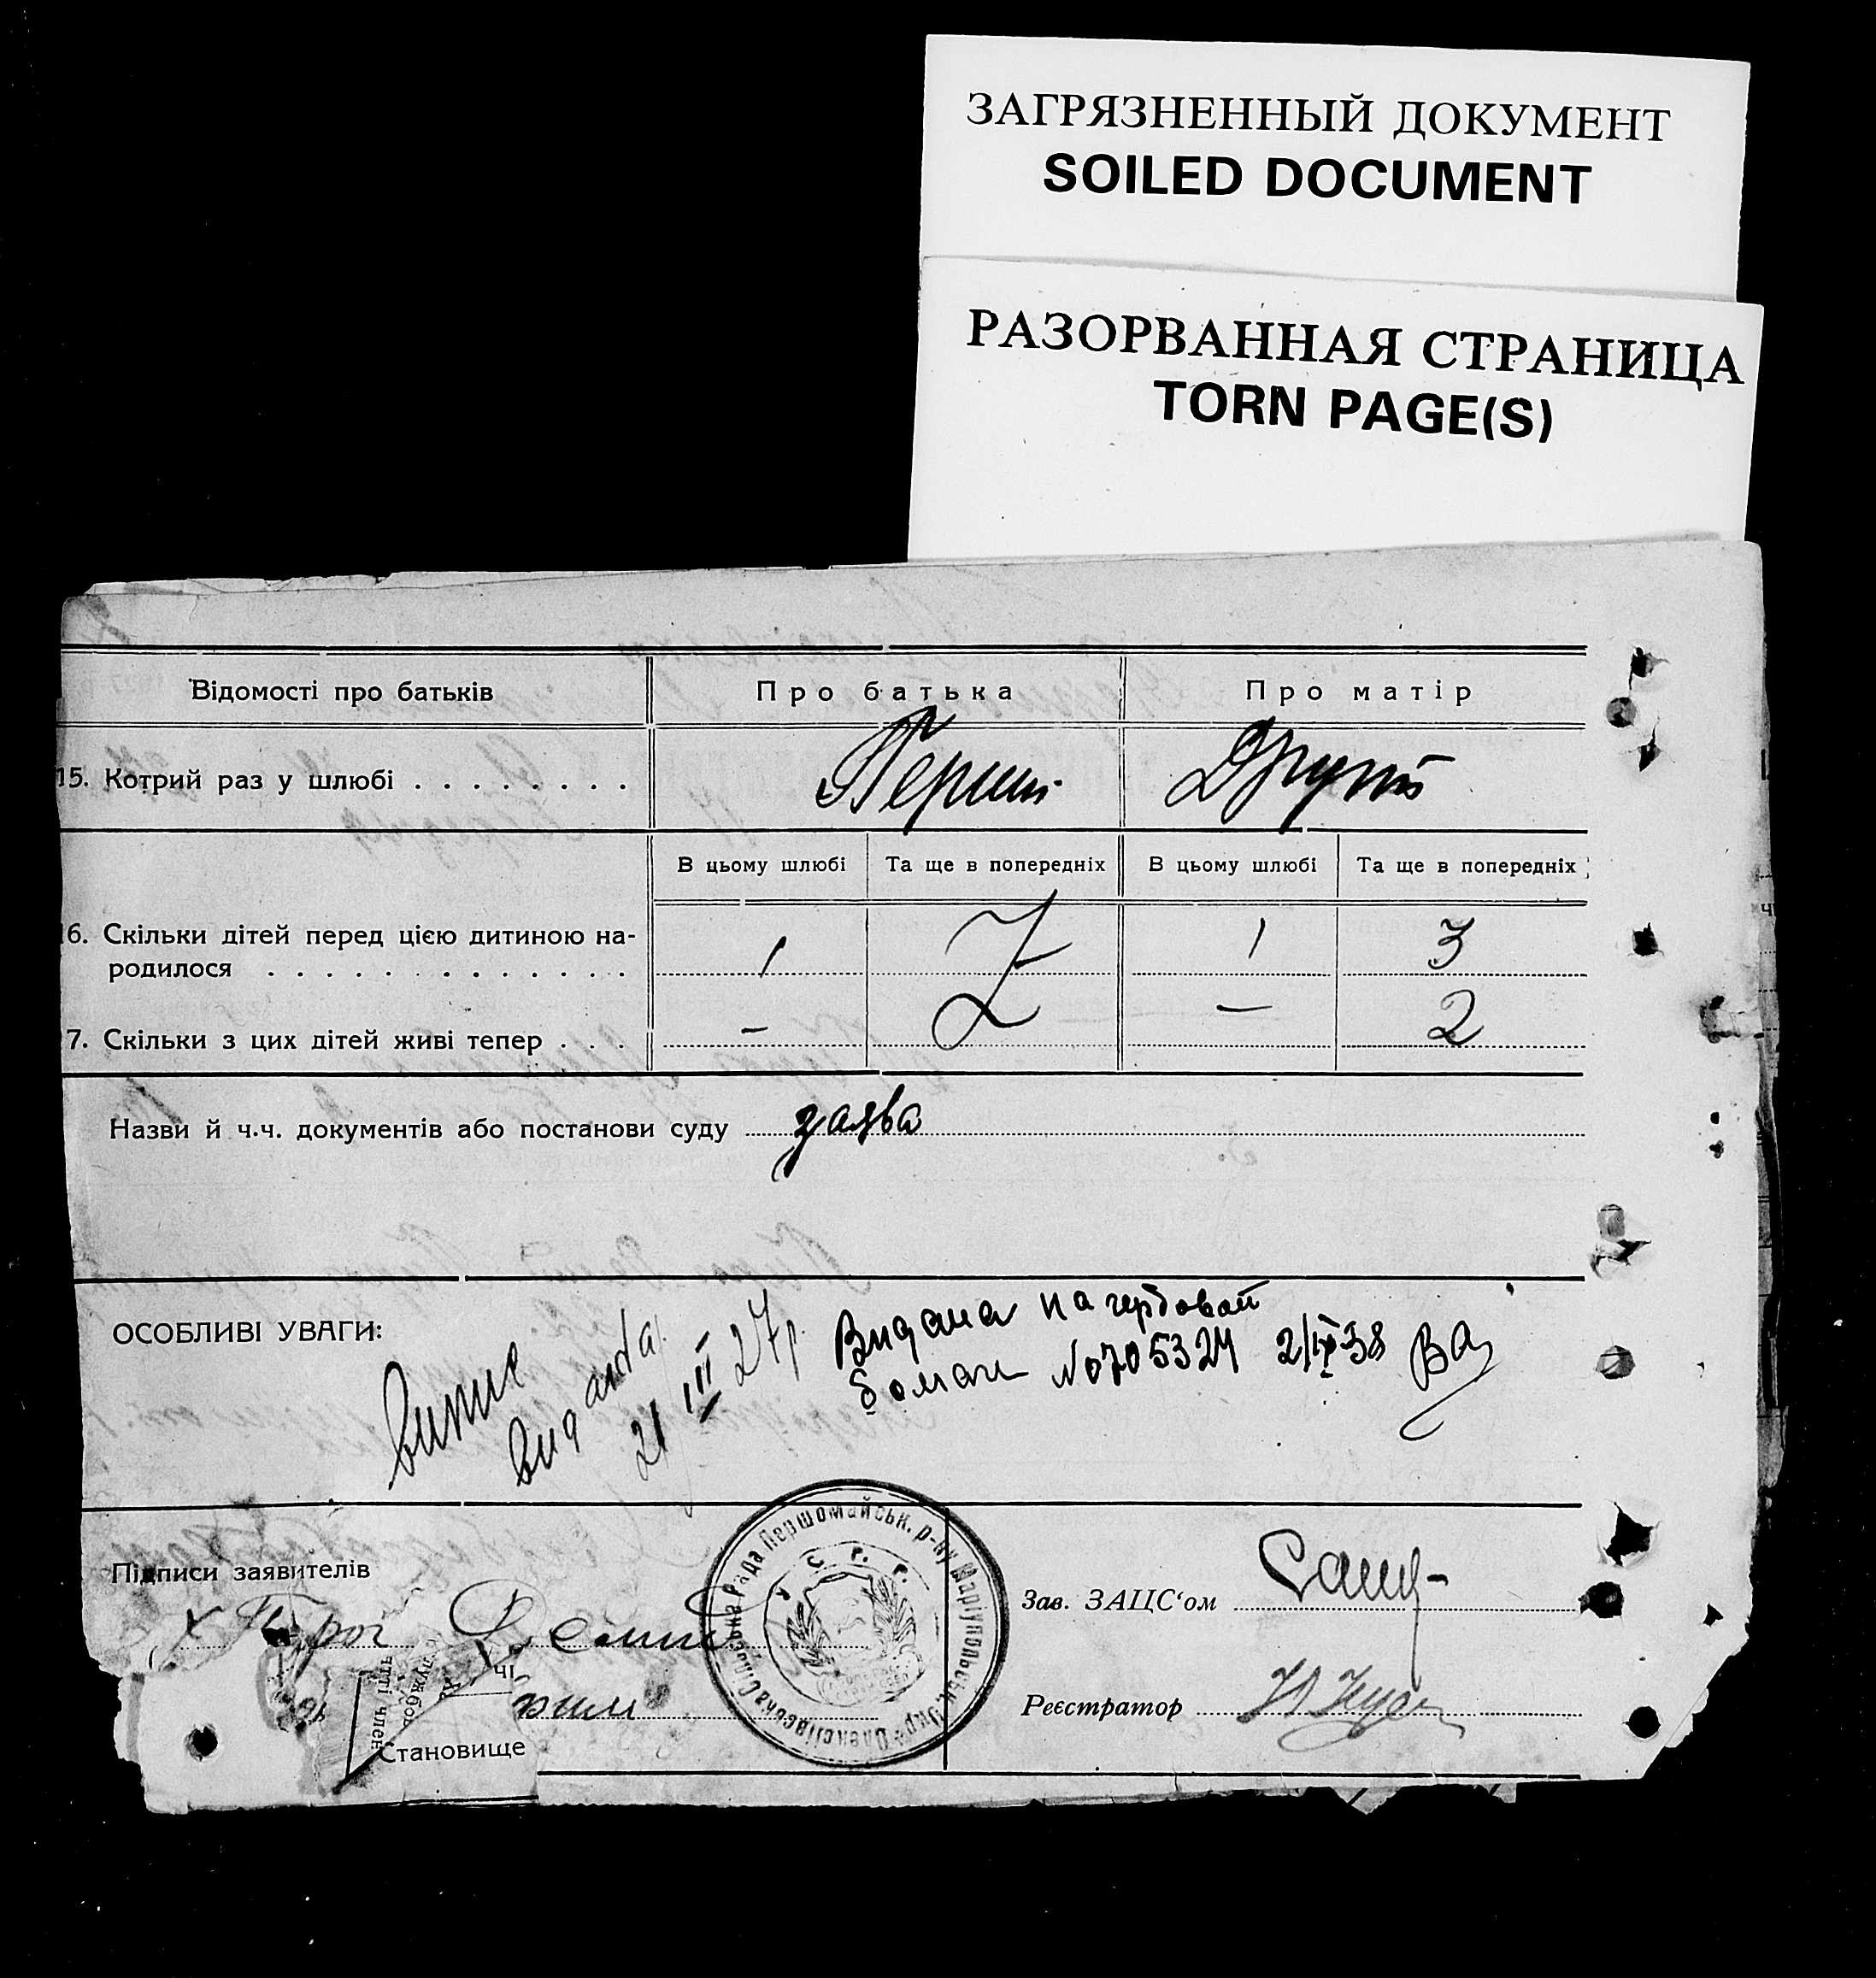 ЗАГРЯЗНЕННЫЙ ДОКУМЕНТ
SOILED DOCUMENT
РАЗОРВАННАЯ СТРАНИЦА
TORN PAGE(S)
Відомості про батьків
Про батька
Про матір
15. Котрий раз у шлюбі
Перший
Другий
В цьому шлюбі
Та ще в попередніх
В цьому шлюбі
Та ще в попередніх
6. Скільки дітей перед цією дитиною на-
родилося
1
1
3
7. Скільки з цих дітей живі тепер
-
-
2
Назви й ч.ч. документів або постанови суду
заява
ОСОБЛИВІ УВАГИ:
випис
видана
21 III 27 р.
Видана на гербовой
бомаги № 705324 2/IX 38
Підписи заявителів
Зав. ЗАЦС‘ом
Реєстратор
Становище
Сільська Рада Першомайськ. р-ну Маріупольськ. Окр.
У. С. Р. Р.